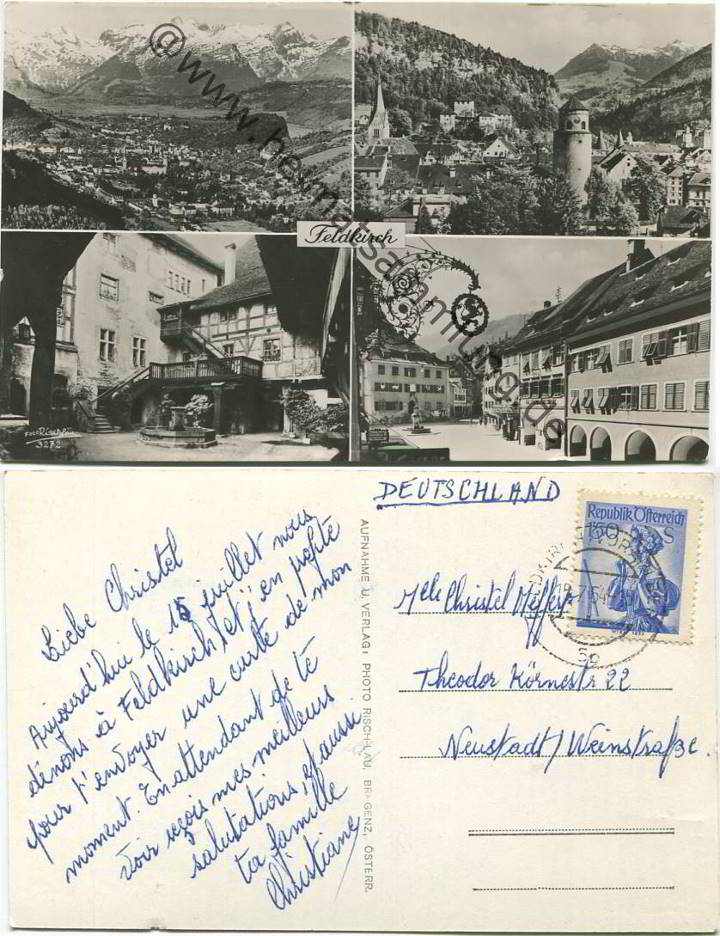 @www.heimatsammlung.de
Feldkirch
FOTO RISCHLAU
3272
Liebe Christel
Aujourd'hui le 15 juillet nous
dînons à Feldkirch, et j'en profite
pour t'envoyer une carte de mon
moment. En attendant de te
voir reçois mes meilleurs
salutations, et aussi
ta famille
Christiane
AUFNAHME U. VERLAG: PHOTO RISCHLAU, BREGENZ, ÖSTERR.
DEUTSCHLAND
Republik Österreich
1.50 S
FELDKIRCH
7.54
Melle Christel
Theodor Körnerstr 22
Neustadt/Weinstraße.